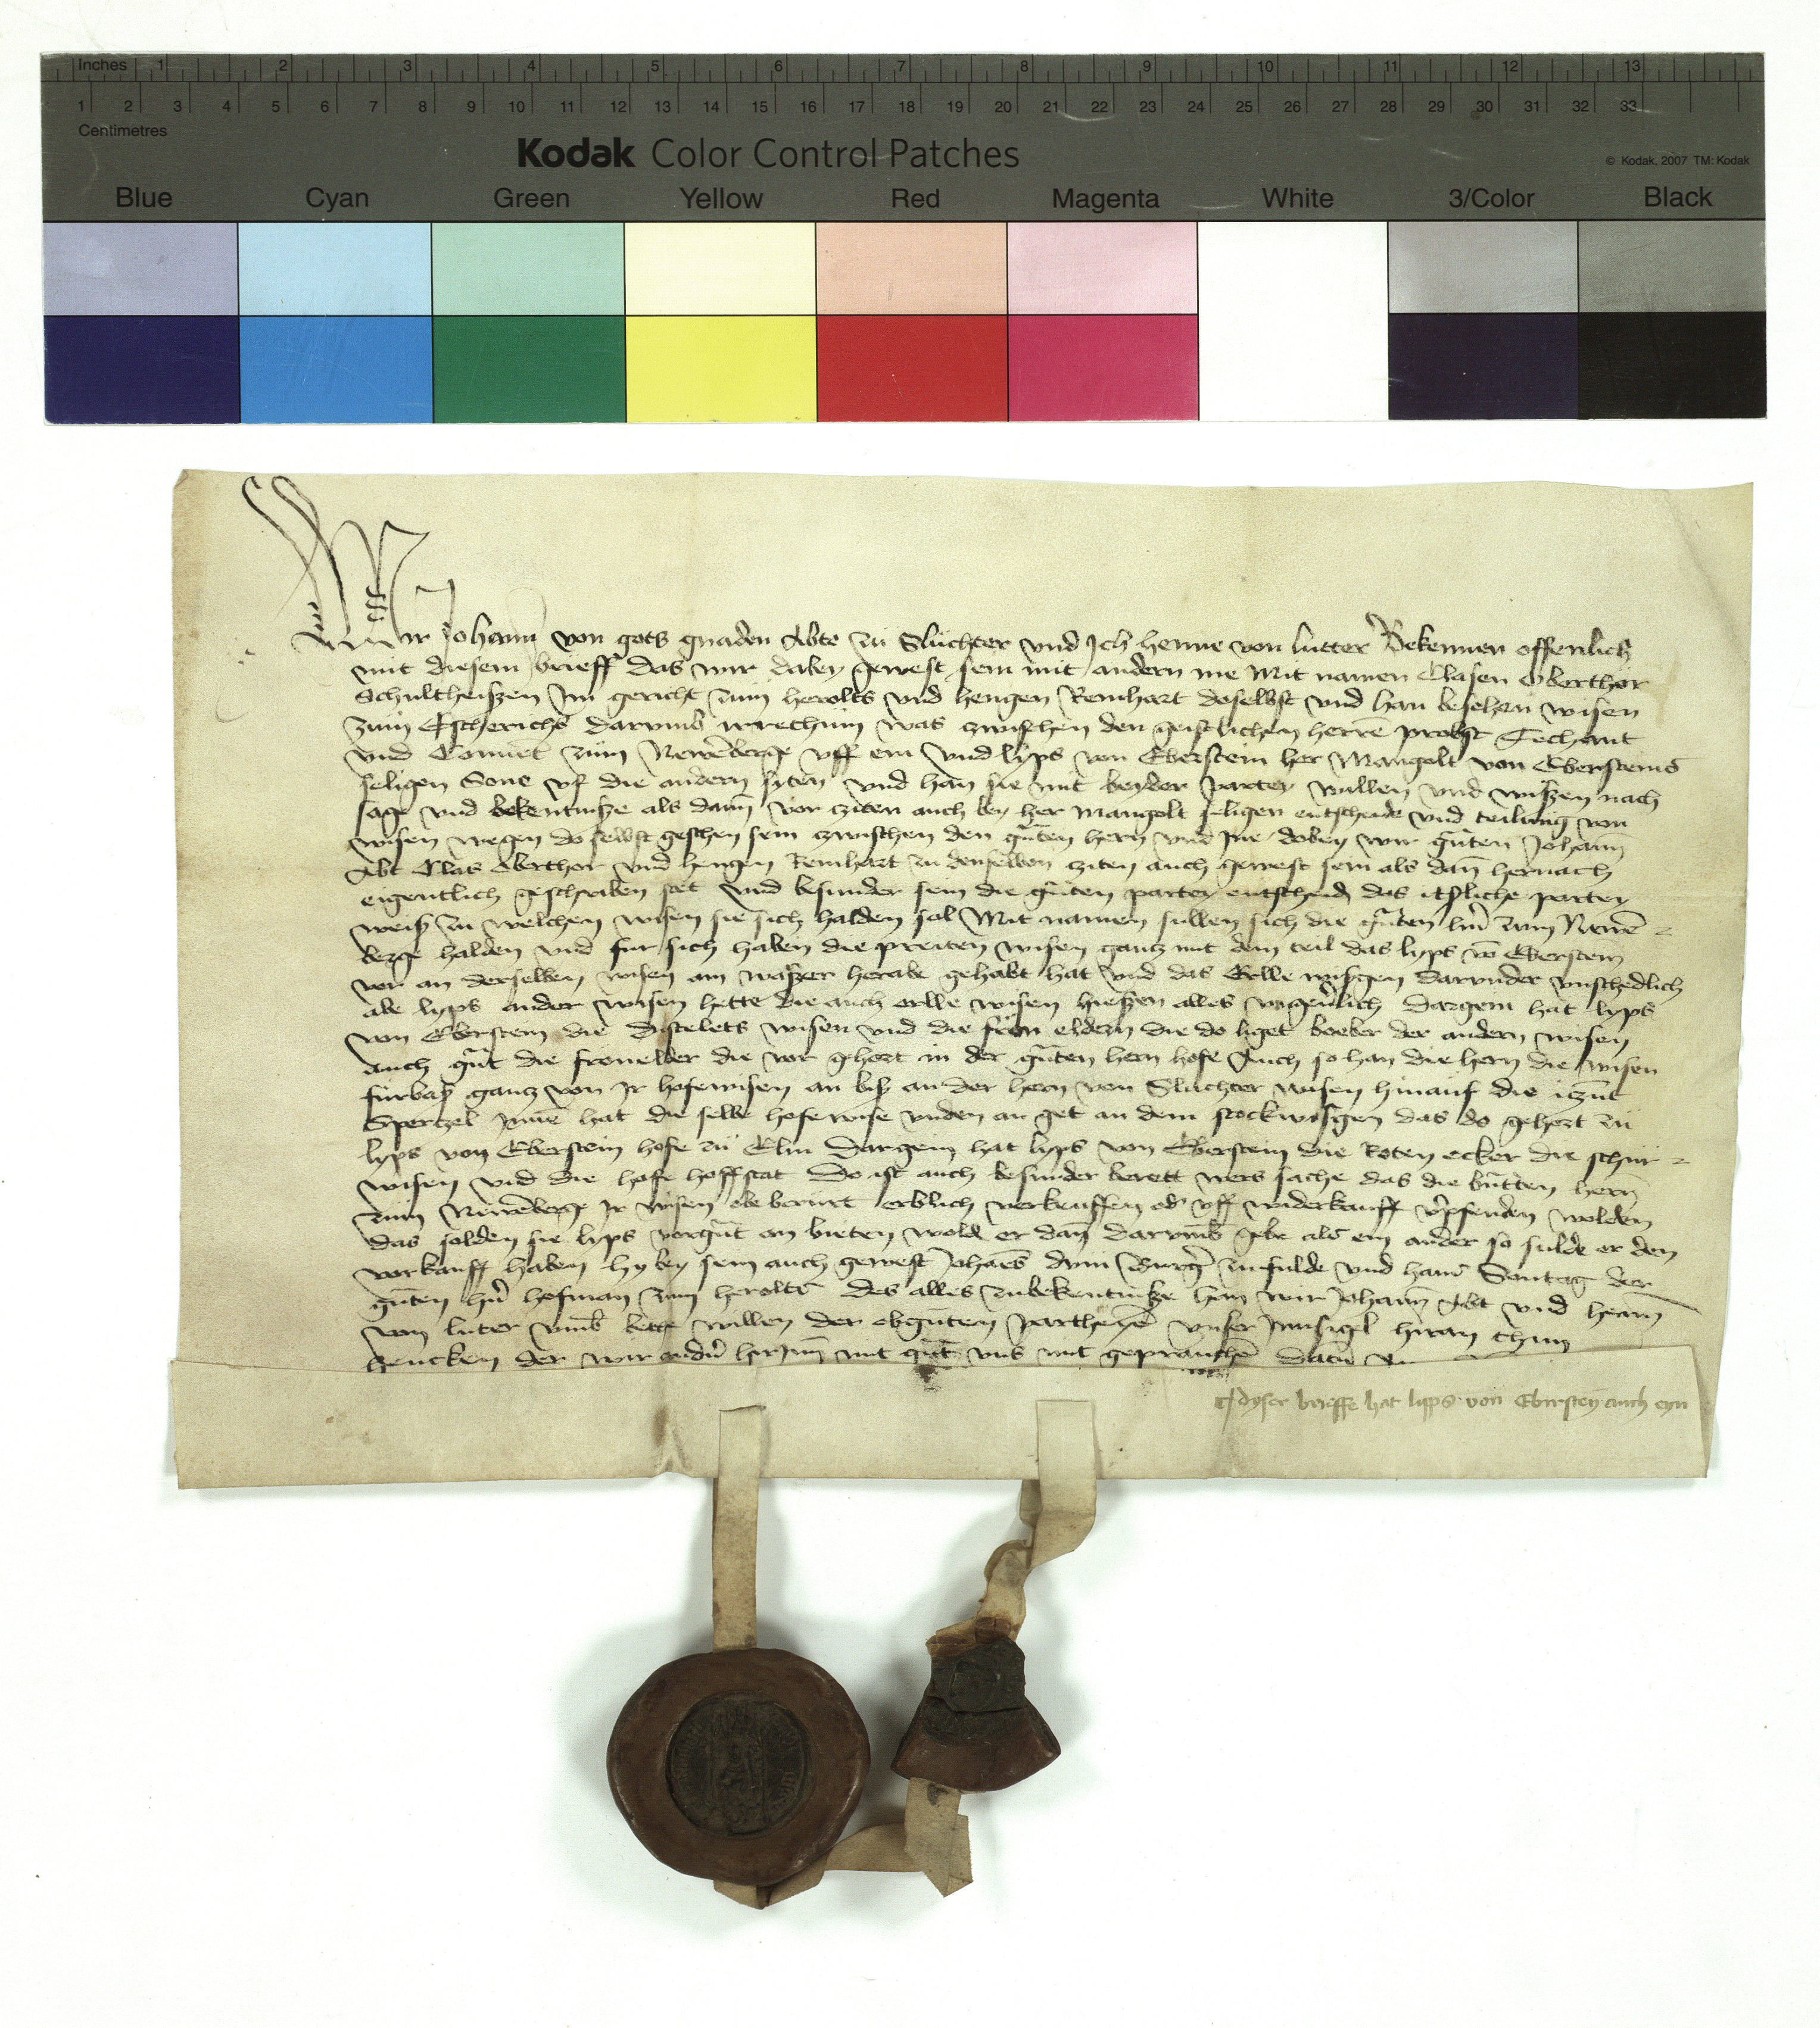 Inches 1 2 3 4 5 6 7 8 9 10 11 12 13
1 2 3 4 5 6 7 8 9 10 11 12 13 14 15 16 17 18 19 20 21 22 23 24 25 26 27 28 29 30 31 32 33
Centimetres
Kodak Color Control Patches
© Kodak, 2007 TM: Kodak
Blue Cyan Green Yellow Red Magenta White 3/Color Black
Wir Johann von gots gnaden Abte zu Sluchter vnd Ich henne von lutter Bekennen offenlich
mit diesem brieff das wir dabey gewest sein mit andern me Mit namen Clasen Oberthor
Schultheißen Im gericht zum herolts vnd hengen Reinhart doselbst vnd han besehen wisen
zum Escherichs darvmb irrethum was zwischen den geistlichen herrē probst Techant
vnd Conuēt zum Newēberge vff ein vnd lyps von Eberstein her Mangolt von Ebersteins
seligen Sone vf die andern syten vnd han sie mit beyder partey willen vnd wißen nach
sage vnd bekentniße als dann vor ziten auch bey her mangolt seligen entscheide vnd teilung von
wisen wegen do selbst geschen sein zwischen den gūten hern vnd Ime dobey wir gūten Johann
Abt Clas Oberthor vnd hengen Reinhart zu denselben ziten auch gewest sein als dan hernach
eigentlich geschreben stet vnd besunder sein die gūten partey entscheid das itzliche partey
weiß zu welchen wisen sie sich halden sol Mit namen sullen sich die gūten hn̄ zum Newē-
berge halden vnd fur sich haben die preiten wisen gantz mit dem teil das lyps vō Eberstein
vor an derselben wisen am waßer herabe gehabt hat vnd das Erlle wisgen darvnder vnschedlich
abe lyps ander wisen hette die auch erlle wisen hießen alles vngeūlich Dargein hat lyps
von Eberstein die Distelets wisen vnd die fron eldern die do liget bober der andern wisen
auch gūt die fronelder die vor gehort in der gūten hern hofe Auch so han die hern die wisen
furbaß gantz von Ir hofewisen an biß an der hern von Sluchter wisen hinauf die itzūt
Spertzel Inne hat die selbe hofe wise vnden an get an dem stockwisgen das do gehort zu
lyps von Eberstein hofe zu Elm Dargein hat lyps von Eberstein die Roten ecker die schur-
wisen vnd die hofe hoffstat Do ist auch besunder berett wers sache das die gūtten hern
zum Newēberge Ir wisen obe berurt erblich verkeuffen od' vff widerkauff v'pfenden wolden
das solden sie lyps vorgūt an bieten wold er dan darvmb gebe als ein ander so sulde er den
vorkauff haben hy bey sein auch gewest Johañs Burg' zu fulde vnd hans Sontag der
gūten hn̄ hofman zum herolts des alles zubekentniße han wir Johann Abt vnd henn
von luter vmb bette willen der obgūten partheyē vnser Innsigel hiran thun
hencken der wir andn̄ hirInn mit gūt vns mit geprauchē Datū
dyser brieffe hat lyps von Eberstey auch eyn